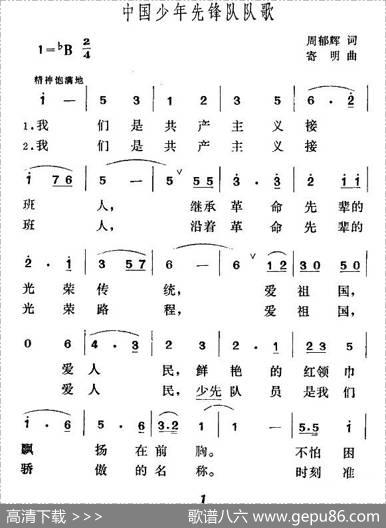 中国少年先锋队队歌
1=♭B 2/4
周郁辉 词
寄明 曲
精神饱满地
1.我 们是共产主义接
2.我 们是共产主义接
班 人, 继承革命先辈的
班 人, 沿着革命先辈的
光荣传 统, 爱祖国,
光荣路 程, 爱祖国,
爱人 民,鲜艳的红领巾
爱人 民,少先队员是我们
飘 扬在前胸。 不怕困
骄 傲的名称。 时刻准
1
高清下载 >>> 歌谱八六 www.gepu86.com